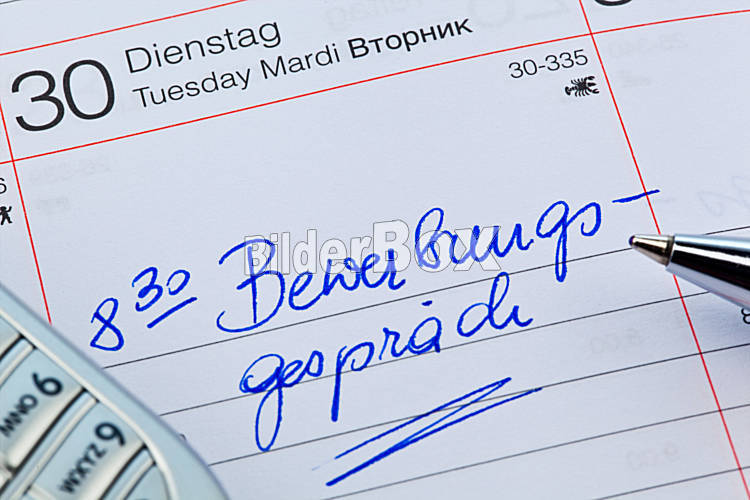 30 Dienstag
Tuesday Mardi Вторник
30-335
8 30 Bewerbungs-
gespräch
BilderBox
6 MNO
9 WXYZ